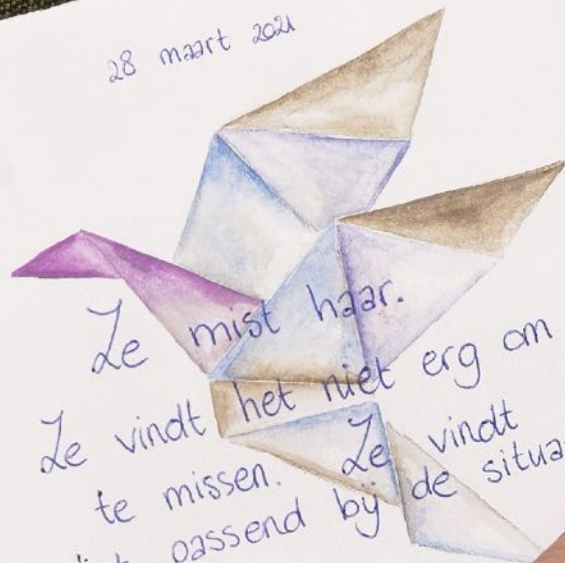 28 maart 2021
Ze mist haar.
Ze vindt het niet erg om
te missen. Ze vindt
passend bij de situa